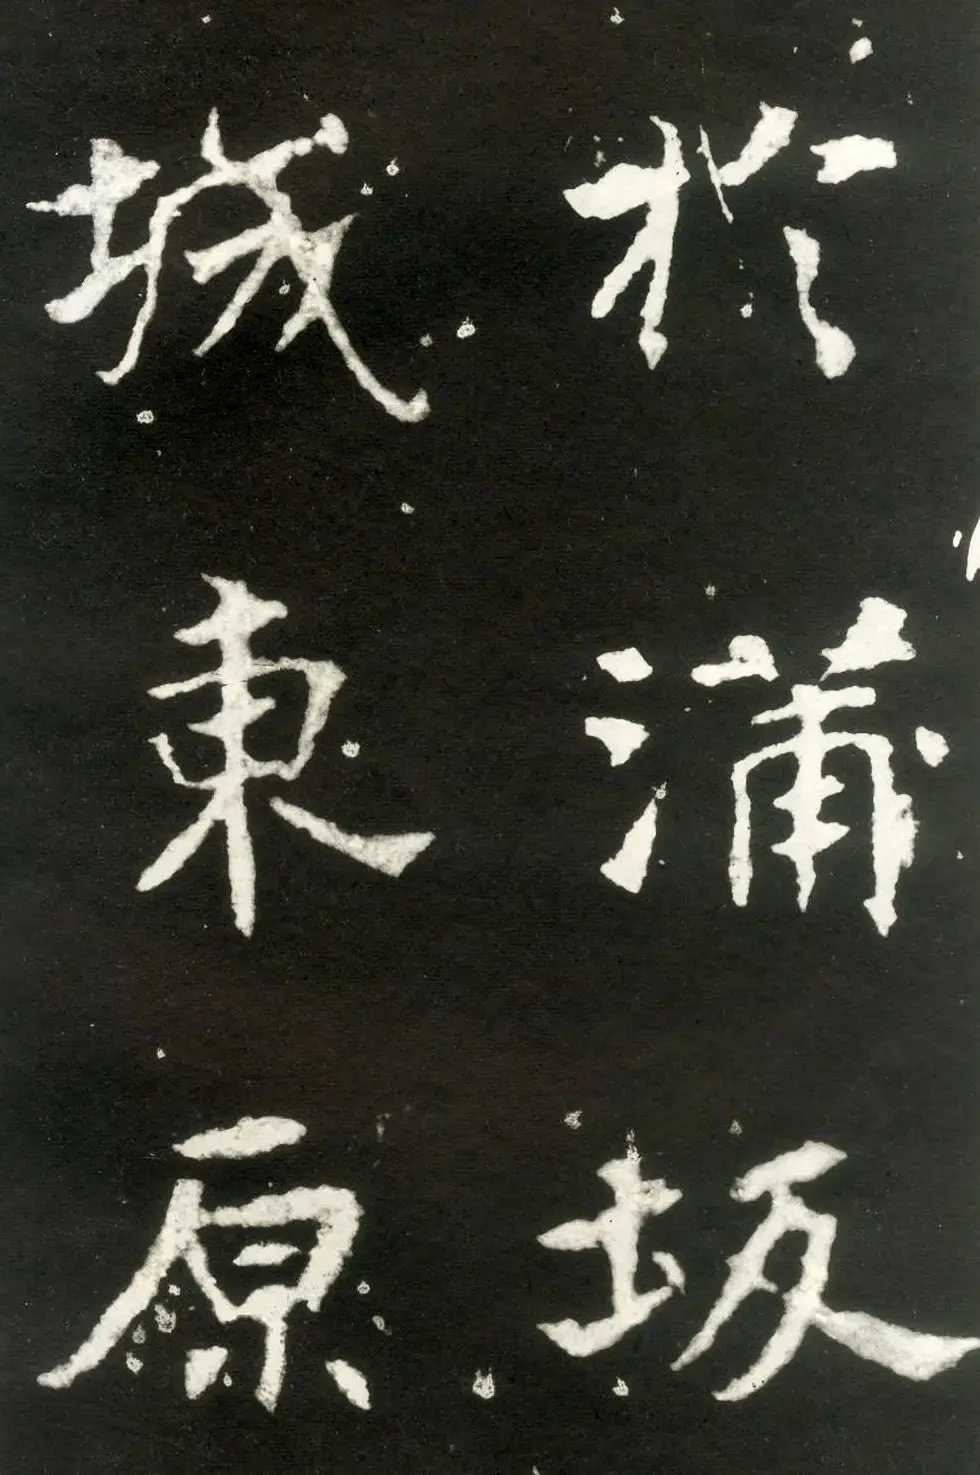 於蒲坂
城東原